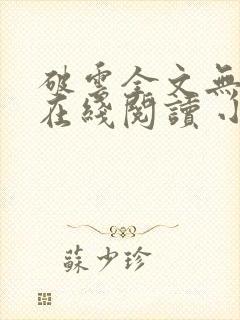 破雲全文無
在綫閱讀 小
蘇少珍